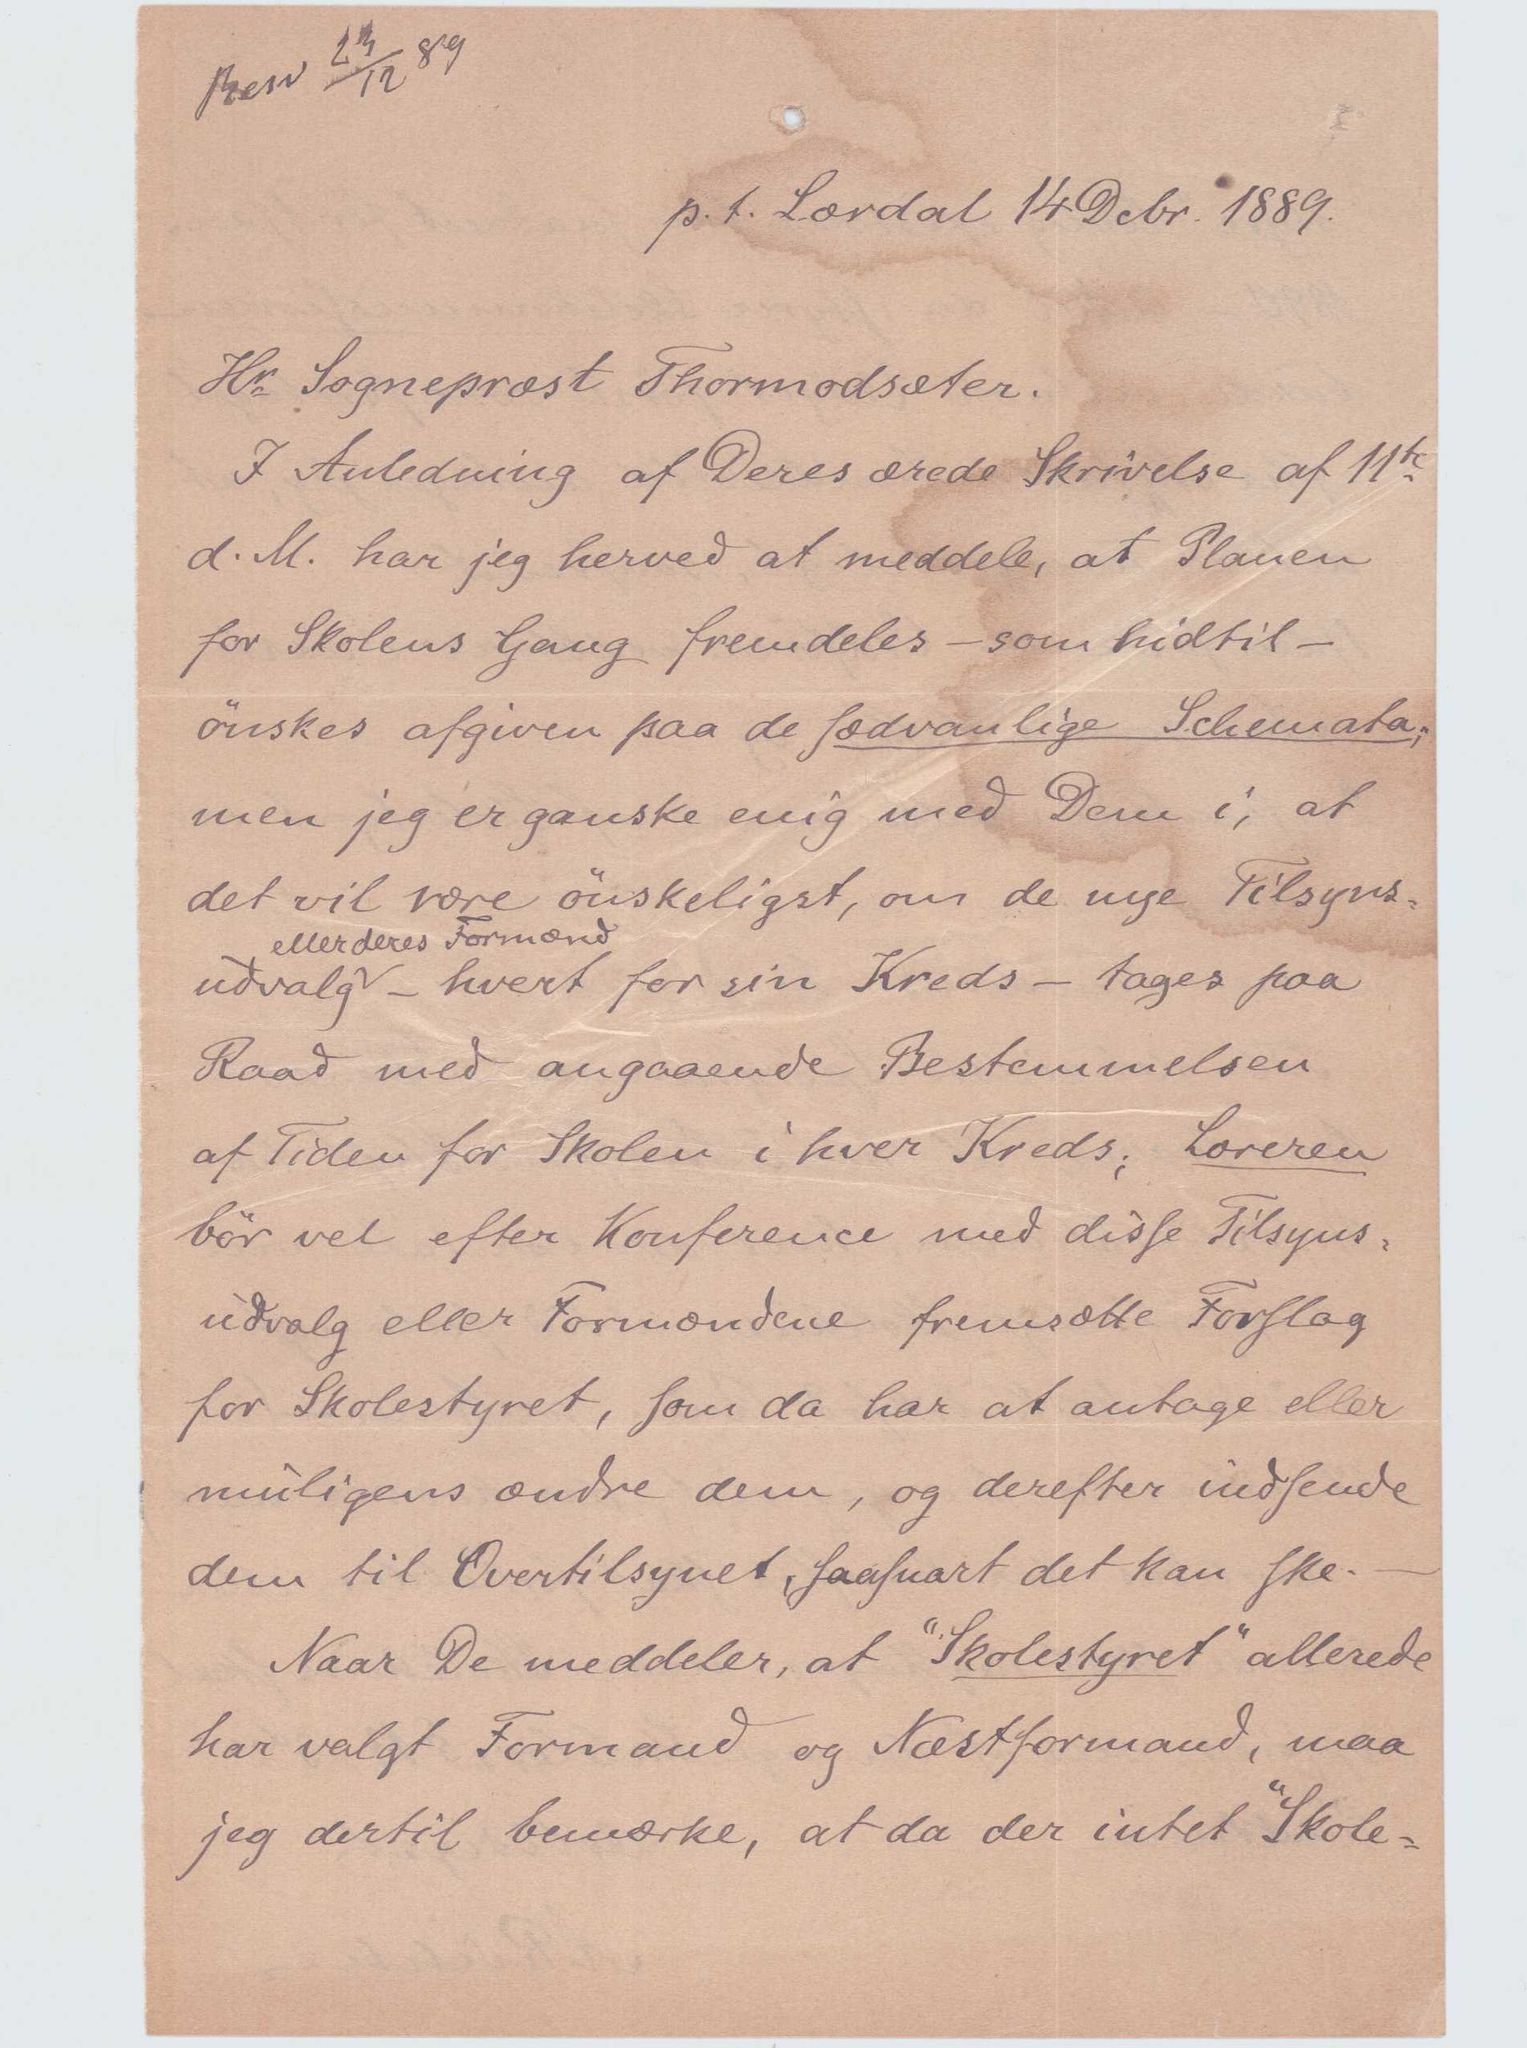 Besv 23/12 89
p. t. Lærdal 14 Debr. 1889.
Hr. Sognepræst Thormodsæter.
I Anledning af Deres ærede Skrivelse af 11te
d. M. har jeg herved at meddele, at Planen
for Skolens Gang fremdeles – som hidtil –
önskes afgiven paa de sædvanlige Schemata;
men jeg er ganske enig med Dem i, at
det vil være önskeligst, om de nye Tilsyns=
eller deres Formænd
udvalg – hvert for sin Kreds – tages paa
Raad med angaaende Bestemmelsen
af Tiden for Skolen i hver Kreds; Læreren
bör vel efter Konference med disse Tilsyns=
udvalg eller Formændene fremsætte Forslag
for Skolestyret, som da har at antage eller
muligens ændre dem, og derefter indsende
dem til Overtilsynet, saasnart det kan ske. –
Naar De meddeler, at "Skolestyret" allerede
har valgt Formand og Næstformand, maa
jeg dertil bemærke, at da der intet "Skole=